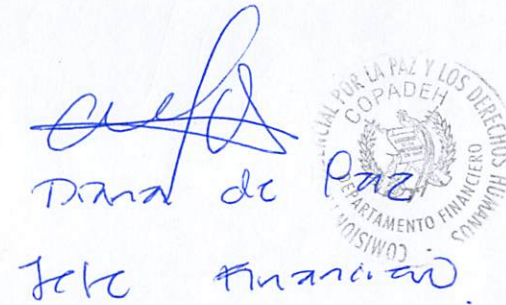 Diana de Paz
Jefe Financiero.
COMISIÓN PRESIDENCIAL POR LA PAZ Y LOS DERECHOS HUMANOS
COPADEH
DEPARTAMENTO FINANCIERO